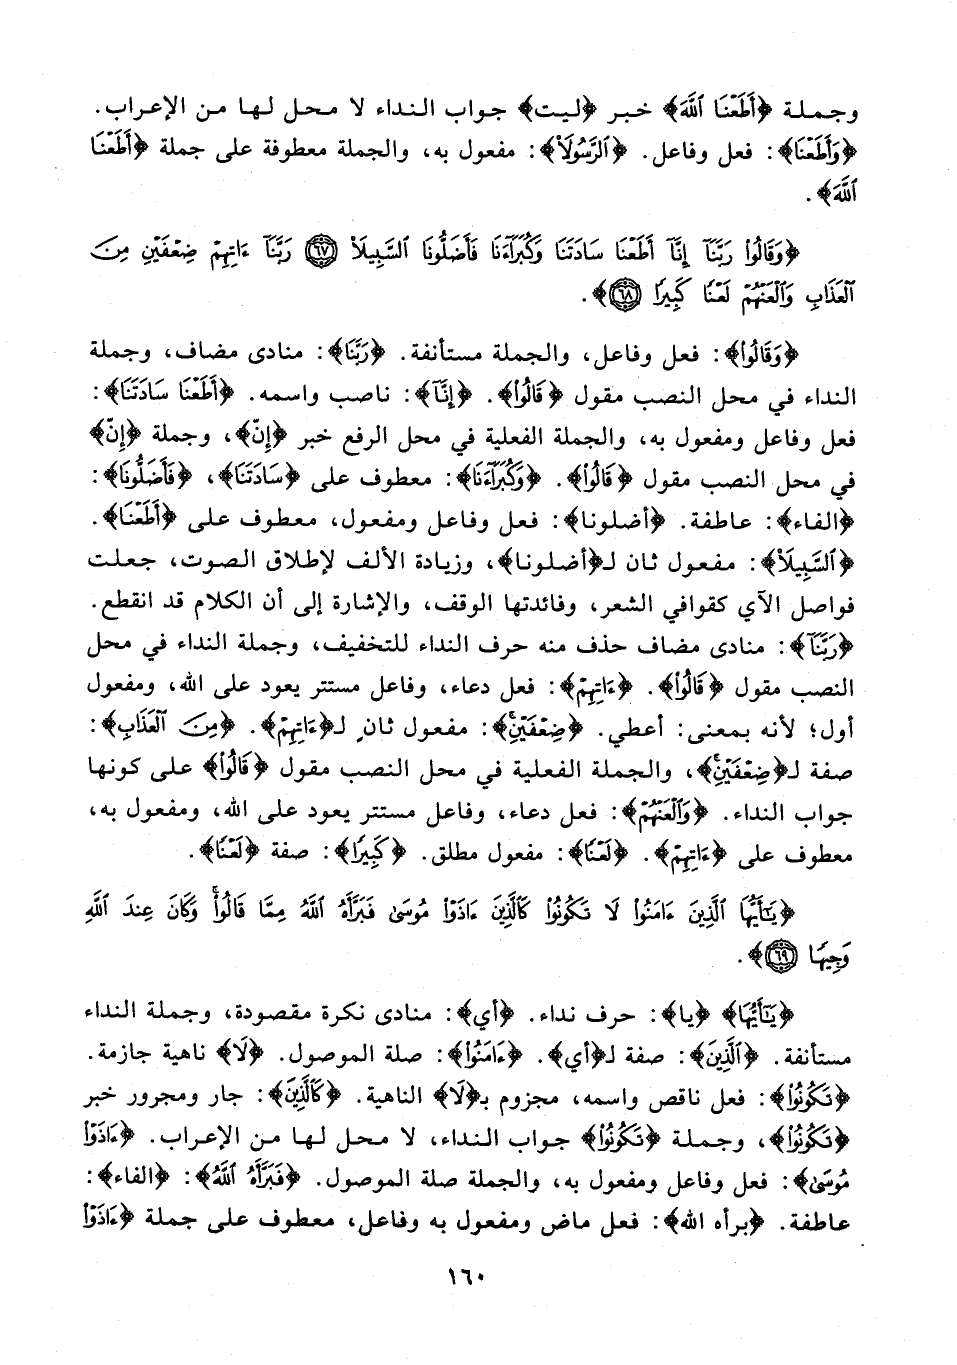 وجملة ﴿أَطَعْنَا ٱللَّهَ﴾ خبر ﴿ليت﴾ جواب النداء لا محل لها من الإعراب.
﴿وَأَطَعْنَا﴾: فعل وفاعل. ﴿ٱلرَّسُولَا۠﴾: مفعول به، والجملة معطوفة على جملة ﴿أَطَعْنَا
ٱللَّهَ﴾.
﴿وَقَالُوا۟ رَبَّنَآ إِنَّآ أَطَعْنَا سَادَتَنَا وَكُبَرَآءَنَا فَأَضَلُّونَا ٱلسَّبِيلَا۠ ٦٧ رَبَّنَآ ءَاتِهِمْ ضِعْفَيْنِ مِنَ
ٱلْعَذَابِ وَٱلْعَنْهُمْ لَعْنًا كَبِيرًا ٦٨﴾.
﴿وَقَالُوا۟﴾: فعل وفاعل، والجملة مستأنفة. ﴿رَبَّنَا﴾: منادى مضاف، وجملة
النداء في محل النصب مقول ﴿قَالُوا۟﴾. ﴿إِنَّآ﴾: ناصب واسمه. ﴿أَطَعْنَا سَادَتَنَا﴾:
فعل وفاعل ومفعول به، والجملة الفعلية في محل الرفع خبر ﴿إِنّ﴾، وجملة ﴿إِنّ﴾
في محل النصب مقول ﴿قَالُوا۟﴾. ﴿وَكُبَرَآءَنَا﴾: معطوف على ﴿سَادَتَنَا﴾، ﴿فَأَضَلُّونَا﴾:
﴿الفاء﴾: عاطفة. ﴿أضلونا﴾: فعل وفاعل ومفعول، معطوف على ﴿أَطَعْنَا﴾.
﴿ٱلسَّبِيلَا۠﴾: مفعول ثان لـ﴿أضلونا﴾، وزيادة الألف لإطلاق الصوت، جعلت
فواصل الآي كقوافي الشعر، وفائدتها الوقف، والإشارة إلى أن الكلام قد انقطع.
﴿رَبَّنَآ﴾: منادى مضاف حذف منه حرف النداء للتخفيف، وجملة النداء في محل
النصب مقول ﴿قَالُوا۟﴾. ﴿ءَاتِهِمْ﴾: فعل دعاء، وفاعل مستتر يعود على الله، ومفعول
أول؛ لأنه بمعنى: أعطي. ﴿ضِعْفَيْنِ﴾: مفعول ثانٍ لـ﴿ءَاتِهِمْ﴾. ﴿مِنَ ٱلْعَذَابِ﴾:
صفة لـ﴿ضِعْفَيْنِ﴾، والجملة الفعلية في محل النصب مقول ﴿قَالُوا۟﴾ على كونها
جواب النداء. ﴿وَٱلْعَنْهُمْ﴾: فعل دعاء، وفاعل مستتر يعود على الله، ومفعول به،
معطوف على ﴿ءَاتِهِمْ﴾. ﴿لَعْنًا﴾: مفعول مطلق. ﴿كَبِيرًا﴾: صفة ﴿لَعْنًا﴾.
﴿يَٰٓأَيُّهَا ٱلَّذِينَ ءَامَنُوا۟ لَا تَكُونُوا۟ كَٱلَّذِينَ ءَاذَوْا۟ مُوسَىٰ فَبَرَّأَهُ ٱللَّهُ مِمَّا قَالُوا۟ۚ وَكَانَ عِندَ ٱللَّهِ
وَجِيهًا ٦٩﴾.
﴿يَٰٓأَيُّهَا﴾ ﴿يا﴾: حرف نداء. ﴿أي﴾: منادى نكرة مقصودة، وجملة النداء
مستأنفة. ﴿ٱلَّذِينَ﴾: صفة لـ﴿أي﴾. ﴿ءَامَنُوا۟﴾: صلة الموصول. ﴿لَا﴾ ناهية جازمة.
﴿تَكُونُوا۟﴾: فعل ناقص واسمه، مجزوم بـ﴿لَا﴾ الناهية. ﴿كَٱلَّذِينَ﴾: جار ومجرور خبر
﴿تَكُونُوا۟﴾، وجملة ﴿تَكُونُوا۟﴾ جواب النداء، لا محل لها من الإعراب. ﴿ءَاذَوْا۟
مُوسَىٰ﴾: فعل وفاعل ومفعول به، والجملة صلة الموصول. ﴿فَبَرَّأَهُ ٱللَّهُ﴾: ﴿الفاء﴾:
عاطفة. ﴿برأه الله﴾: فعل ماض ومفعول به وفاعل، معطوف على جملة ﴿ءَاذَوْا۟
١٦٠